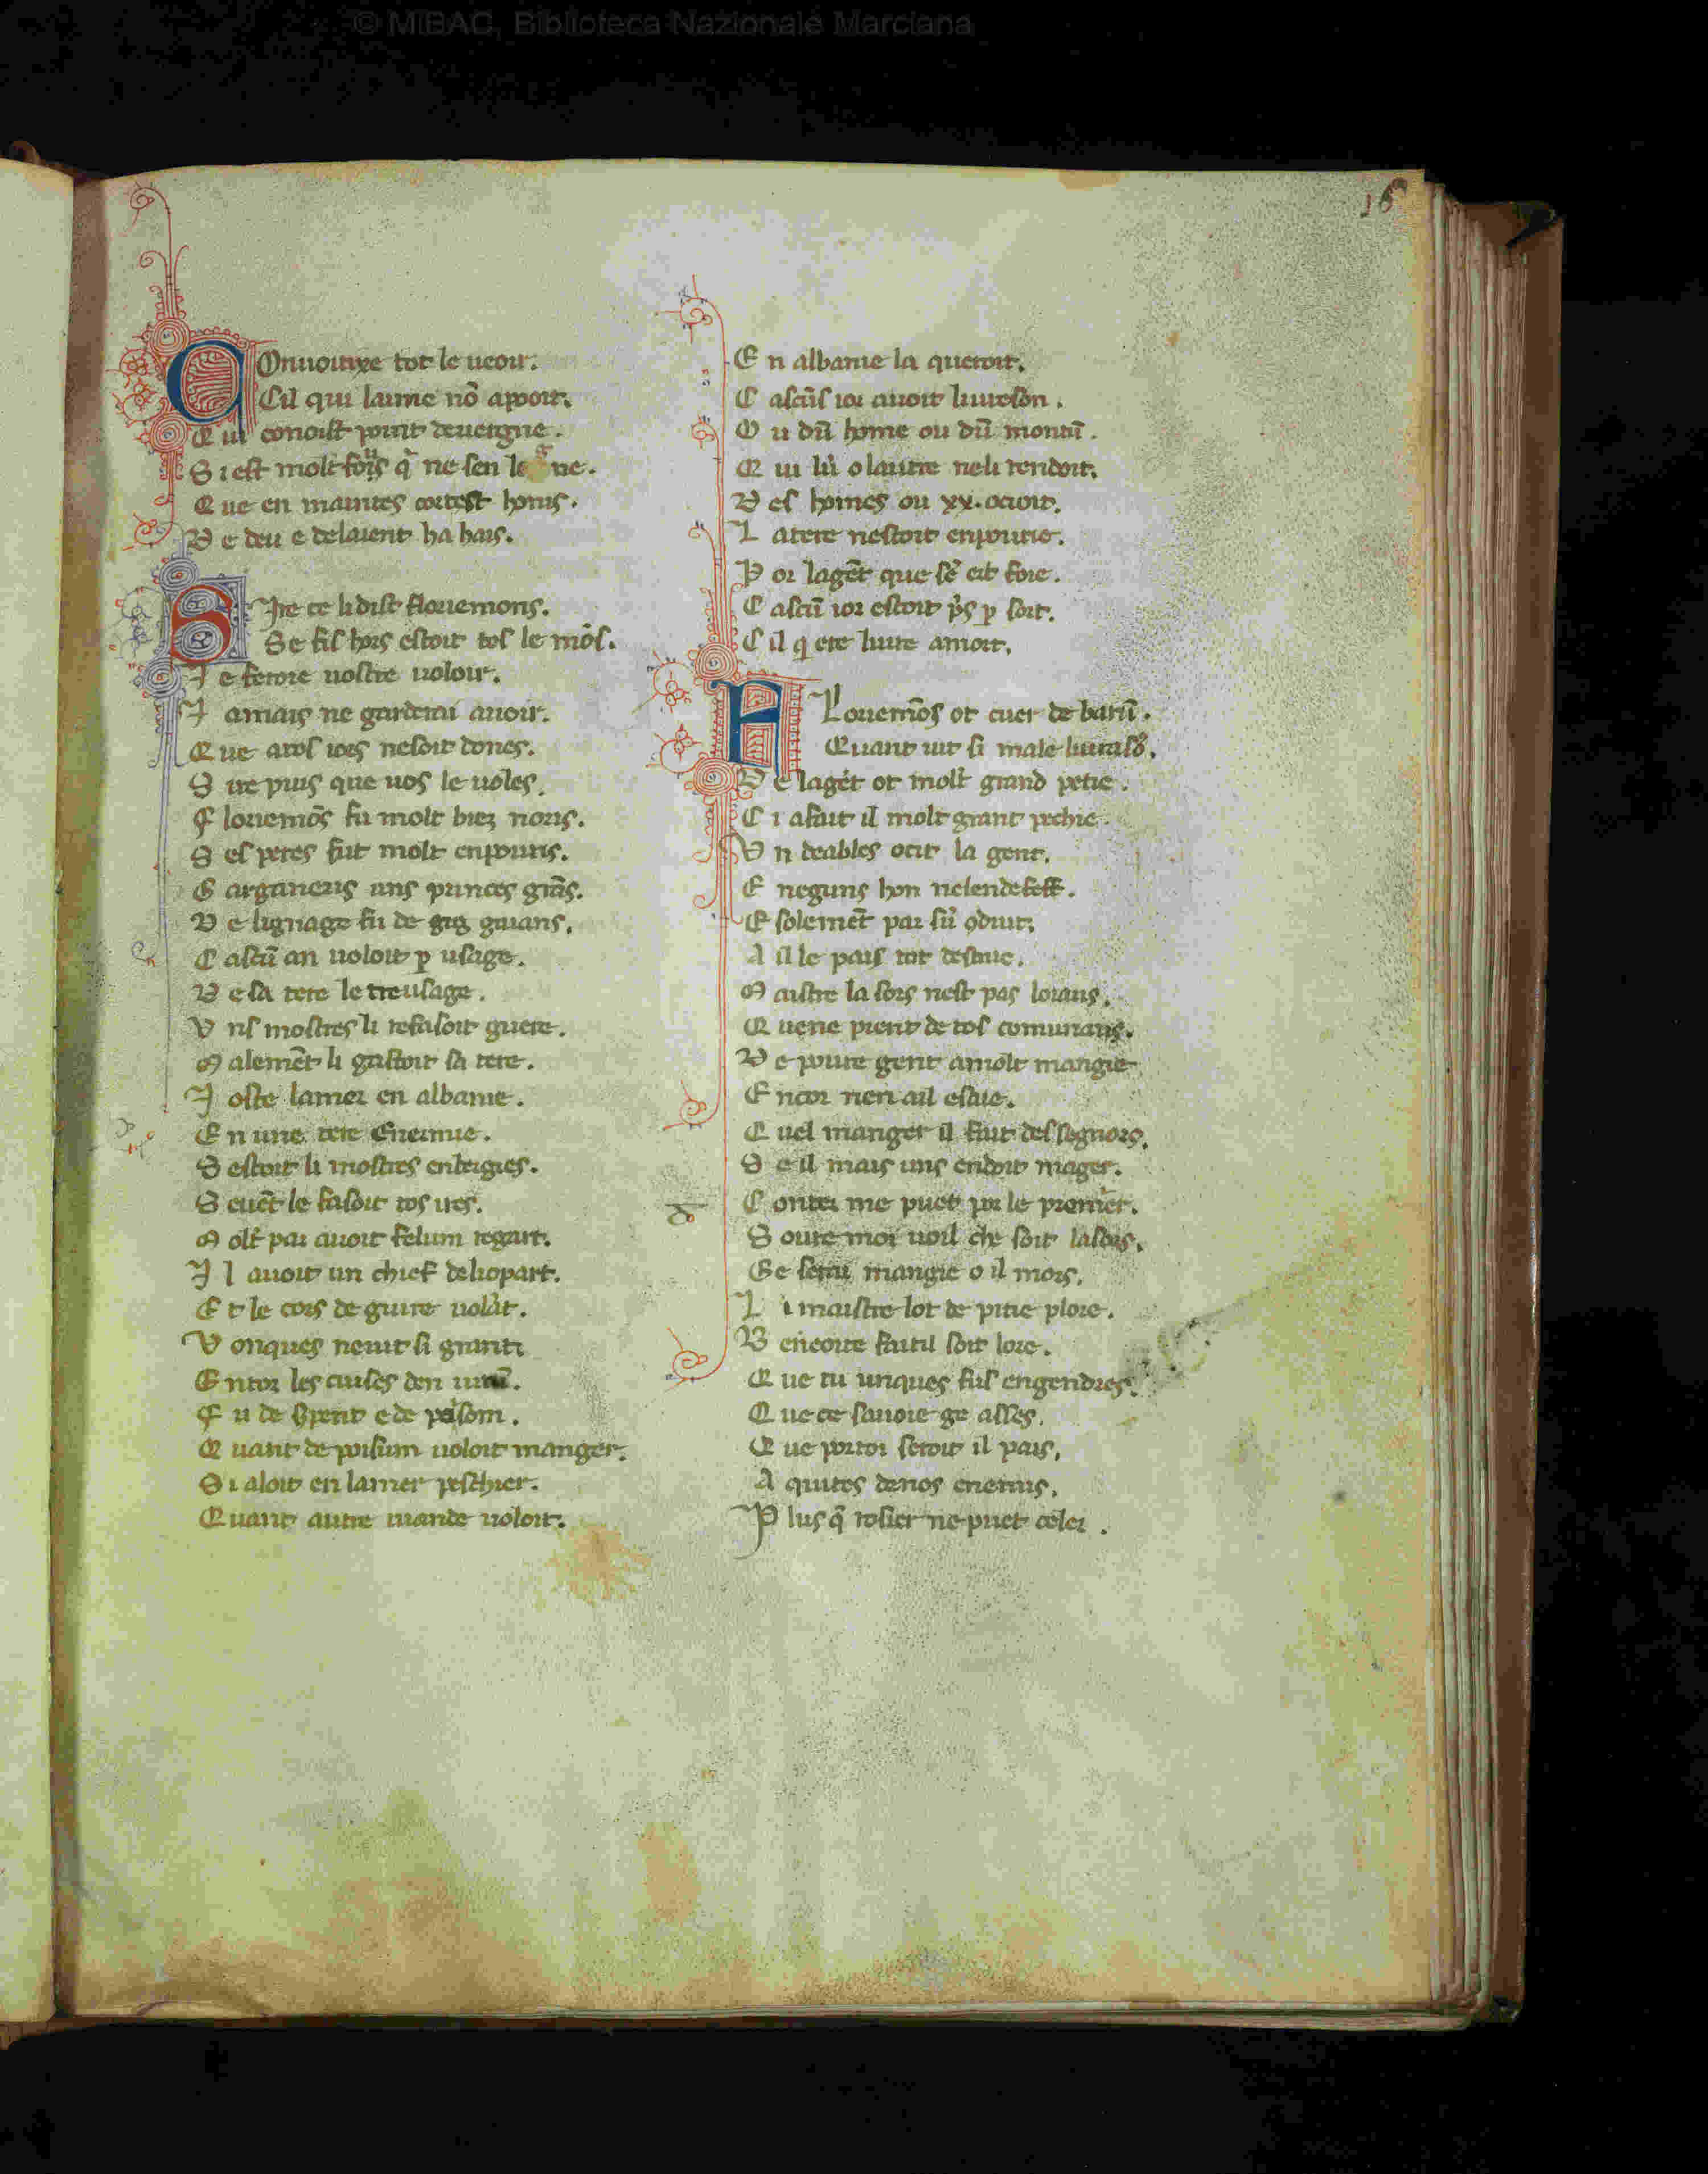 © MiBAC, Biblioteca Nazionale Marciana
16
COnuoitixe tot le ueoir.
Cil qui laime nō apooir.
Qui conoist point deueigne.
Si est molt fous q̄ ne sen le ne.
Que en maintes cortest honis.
De deu e delaient ha hais.
SIre ce li dist flouemons.
Se fil hors estoit tos le mōs.
Ie feroie uostre uoloir.
Iamais ne garderai auoir.
Que atos iors nesoit dones.
Sire puis que uos le uoles.
Flouemōs fu molt biez noris.
Ses peres fut molt enpouris.
Garganeus uns princes grās.
De lignage fu de gig gaians.
Cascū an uoloit p usage.
De sa tere le treusage.
Uns mostres li refasoit guere.
Malemēt li gastoit sa tere.
Ioste lamer en albanie.
En une tere Enermie.
Sestoit li mostres enbrigies.
Seuēt le fasoit tos ires.
Molt par auoit felum regart.
Il auoit un chief deliopart.
Et le cors de guire uolāt.
Uonques neuit si grant.
Entor les cuises den
Fu de Spent e de paisom.
Quant de poisum uoloit manger.
Si aloit en lamer peschier.
Quant autre uiande uoloit.
En albanie la queroit.
Cascūs ior auoit liureson.
Ou dū home ou dū montū.
Qui lū o lautre neli rendoit.
Des homes ou xx. ocioit.
Latere nestoit enpourie.
Por lagēt que sē eit foie.
Cascū ior estoit p̄s p sort.
Cil q ere liure amort.
FLouemōs ot cuer de barū.
Quant uit si male liuraisō.
De lagēt ot molt grand petie.
Ci afait il molt grant pechie.
Un deables ocit la gent.
E neguns hon nelendefest.
E solemēt par sū
A il le pais tot destruie.
Maistre la sors nest pas loiaus.
Quene prent de tos comunaus.
De poure gent amolt mangie
Encor nen ail estue.
Quel manger il fait del segnors.
Se il mais uns endoit mager.
Conter me puet por le premier.
Soure moi uoil che soit lasors.
Ge serai mangie o il mors.
Li maistre lot de pitie plore.
Beneoite faitil soit lore.
Que tu unques fus engendres.
Que ce sauoie ge asses.
Que portoi seroit il pais.
Aquites denos enemis.
Plus q̄ rosier ne puet celer.